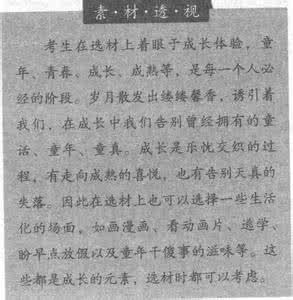 素·材·透·视
考生在选材上着眼于成长体验，童
年、青春、成长、成熟等，是每一个人必
经的阶段。岁月散发出缕缕馨香，诱引着
我们，在成长中我们告别曾经拥有的童
话、童年、童真。成长是乐忧交织的过
程，有走向成熟的喜悦，也有告别天真的
失落。因此在选材上也可以选择一些生活
化的场面，如画漫画、看动画片、逃学、
盼早点放假以及童年干傻事的滋味等。这
些都是成长的元素，选材时都可以考虑。